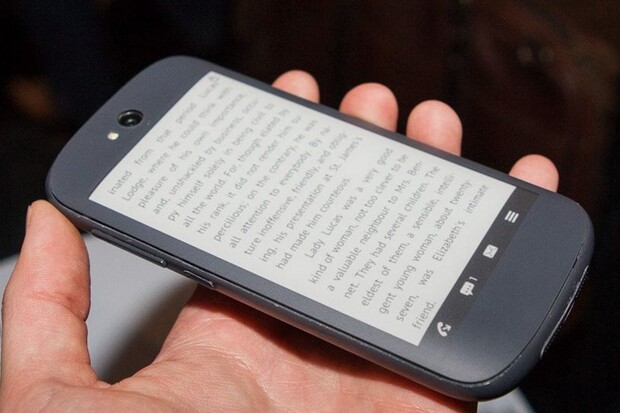 inated from that period Lucas
Lodge, where he could think with
pleasure of his own importance,
and, unshackled by business, occu-
py himself solely in being civil to
all the world. For though elated by
his rank, it did not render him su-
percilious; on the contrary, he was
all attention to everybody. By na-
ture inoffensive, friendly, and oblig-
ing, his presentation at St. James's
had made him courteous.
Lady Lucas was a very good
kind of woman, not too clever to be
a valuable neighbour to Mrs. Ben-
net. They had several children. The
eldest of them, a sensible, intelli-
gent young woman, about twenty-
seven, was Elizabeth's intimate
friend.
1